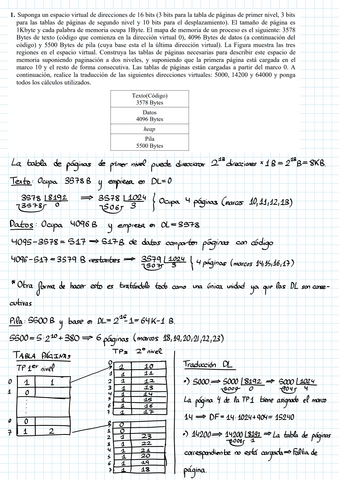 1. Suponga un espacio virtual de direcciones de 16 bits (3 bits para la tabla de páginas de primer nivel, 3 bits
para las tablas de páginas de segundo nivel y 10 bits para el desplazamiento). El tamaño de página es
1Kbyte y cada palabra de memoria ocupa 1Byte. El mapa de memoria de un proceso es el siguiente: 3578
Bytes de texto (código que comienza en la dirección virtual 0), 4096 Bytes de datos (a continuación del
código) y 5500 Bytes de pila (cuya base esta el la última dirección virtual). La Figura muestra las tres
regiones en el espacio virtual. Construya las tablas de páginas necesarias para describir este espacio de
memoria suponiendo paginación a dos niveles, y suponiendo que la primera página está cargada en el
marco 10 y el resto de forma consecutiva. Las tablas de páginas están cargadas a partir del marco 0. A
continuación, realice la traducción de las siguientes direcciones virtuales: 5000, 14200 y 64000 y ponga
todos los cálculos utilizados.
Texto(Código)
3578 Bytes
Datos
4096 Bytes
heap
Pila
5500 Bytes
La tabla de páginas de primer nivel puede direccionar 2^13 direcciones × 1B = 2^13B = 8KB.
Texto: Ocupa 3578 B y empieza en DL=0
3578 | 8192 ⇒ 3578 | 1024 } Ocupa 4 páginas (marcos 10, 11, 12, 13)
/3578/ 0 /506/ 3
Datos: Ocupa 4096 B y empieza en DL=3578
4095-3578 = 517 ⇒ 517 B de datos comparten páginas con código
4096-517 = 3579 B restantes ⇒ 3579 | 1024 } 4 páginas (marcos 14, 15, 16, 17)
/507/ 3
* Otra forma de hacer esto es tratándolo todo como una única unidad ya que las DL son conse-
cutivas
Pila: 5500 B y base en DL = 2^16-1 = 64K-1 B.
5500 = 5·2^10 + 380 ⇒ 6 páginas (marcos 18, 19, 20, 21, 22, 23)
TABLA PÁGINAS
TP 1er nivel
0 1 1
1 0
7 1 2
TPs 2º nivel
1 10
1 11
1 12
1 13
1 14
1 15
1 16
1 17
0
0
1 23
1 22
1 21
1 20
1 19
1 18
Traducción DL
•) 5000 ⇒ 5000 | 8192 ⇒ 5000 | 1024
/5000/ 0 /904/ 4
La página 4 de la TP1 tiene cargado el marco
14 ⇒ DF = 14·1024 + 904 = 15240
•) 14200 ⇒ 14200 | 8192 ⇒ La tabla de páginas
1
correspondiente no está cargada ⇒ Fallo de
página.